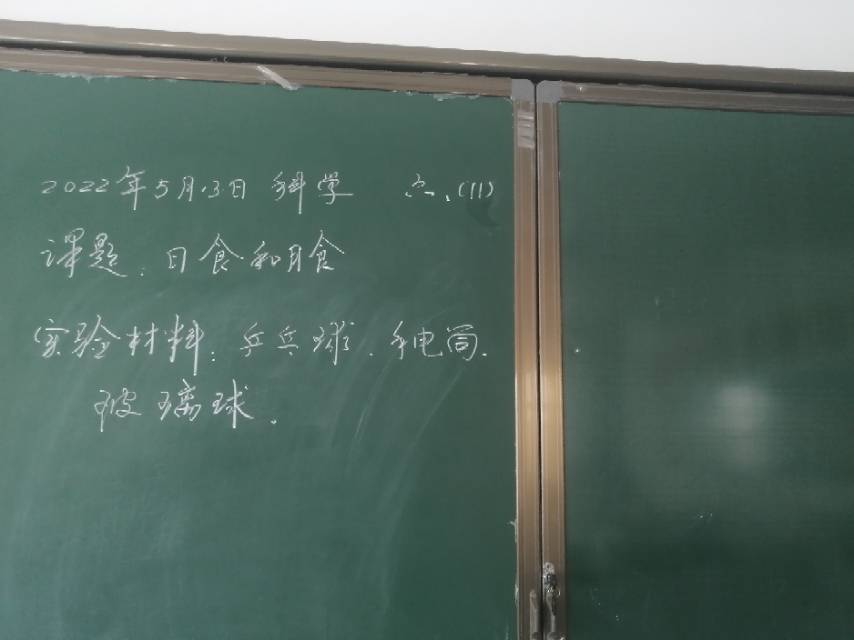 2022年5月13日 科学 六、(11)
课题、日食和月食
实验材料:乒乓球、手电筒、
玻璃球、